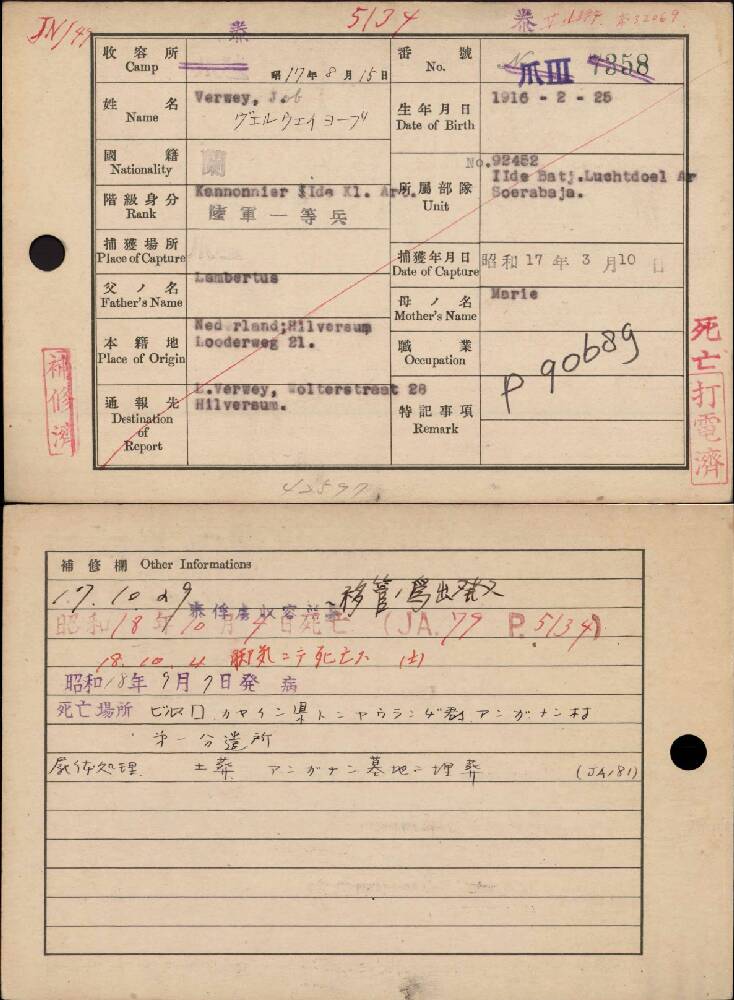 JN/49
泰
5134
泰
收容所
Camp
昭17年8月15日
番號
No.
爪III 7358
姓名
Name
Verwey, Job
ヴエルウエイ ヨープ
生年月日
Date of Birth
1916 - 2 - 25
國籍
Nationality
蘭
階級身分
Rank
Kannonnier IIde Kl. Art.
陸軍一等兵
所屬部隊
Unit
No.92452
IIde Batj.Luchtdoel Ar
Soerabaja.
捕獲場所
Place of Capture
捕獲年月日
Date of Capture
昭和17年3月10日
父ノ名
Father's Name
Lambertus
母ノ名
Mother's Name
Marie
本籍地
Place of Origin
Nederland;Hilversum
Looderweg 21.
職業
Occupation
P 90689
通報先
Destination
of
Report
L.Verwey, Wolterstraat 28
Hilversum.
特記事項
Remark
補修濟
死亡打電濟
42597
補修欄 Other Informations
17.10.29 泰俘虜収容所 移管ノ為出発
昭和18年10月4日死亡 (JA.79 P.5134)
18.10.4 脚気ニテ死亡ス
昭和18年9月7日発病
死亡場所
第一分遣所
屍体処理 土葬 アンガナン墓地ニ埋葬 (JA181)